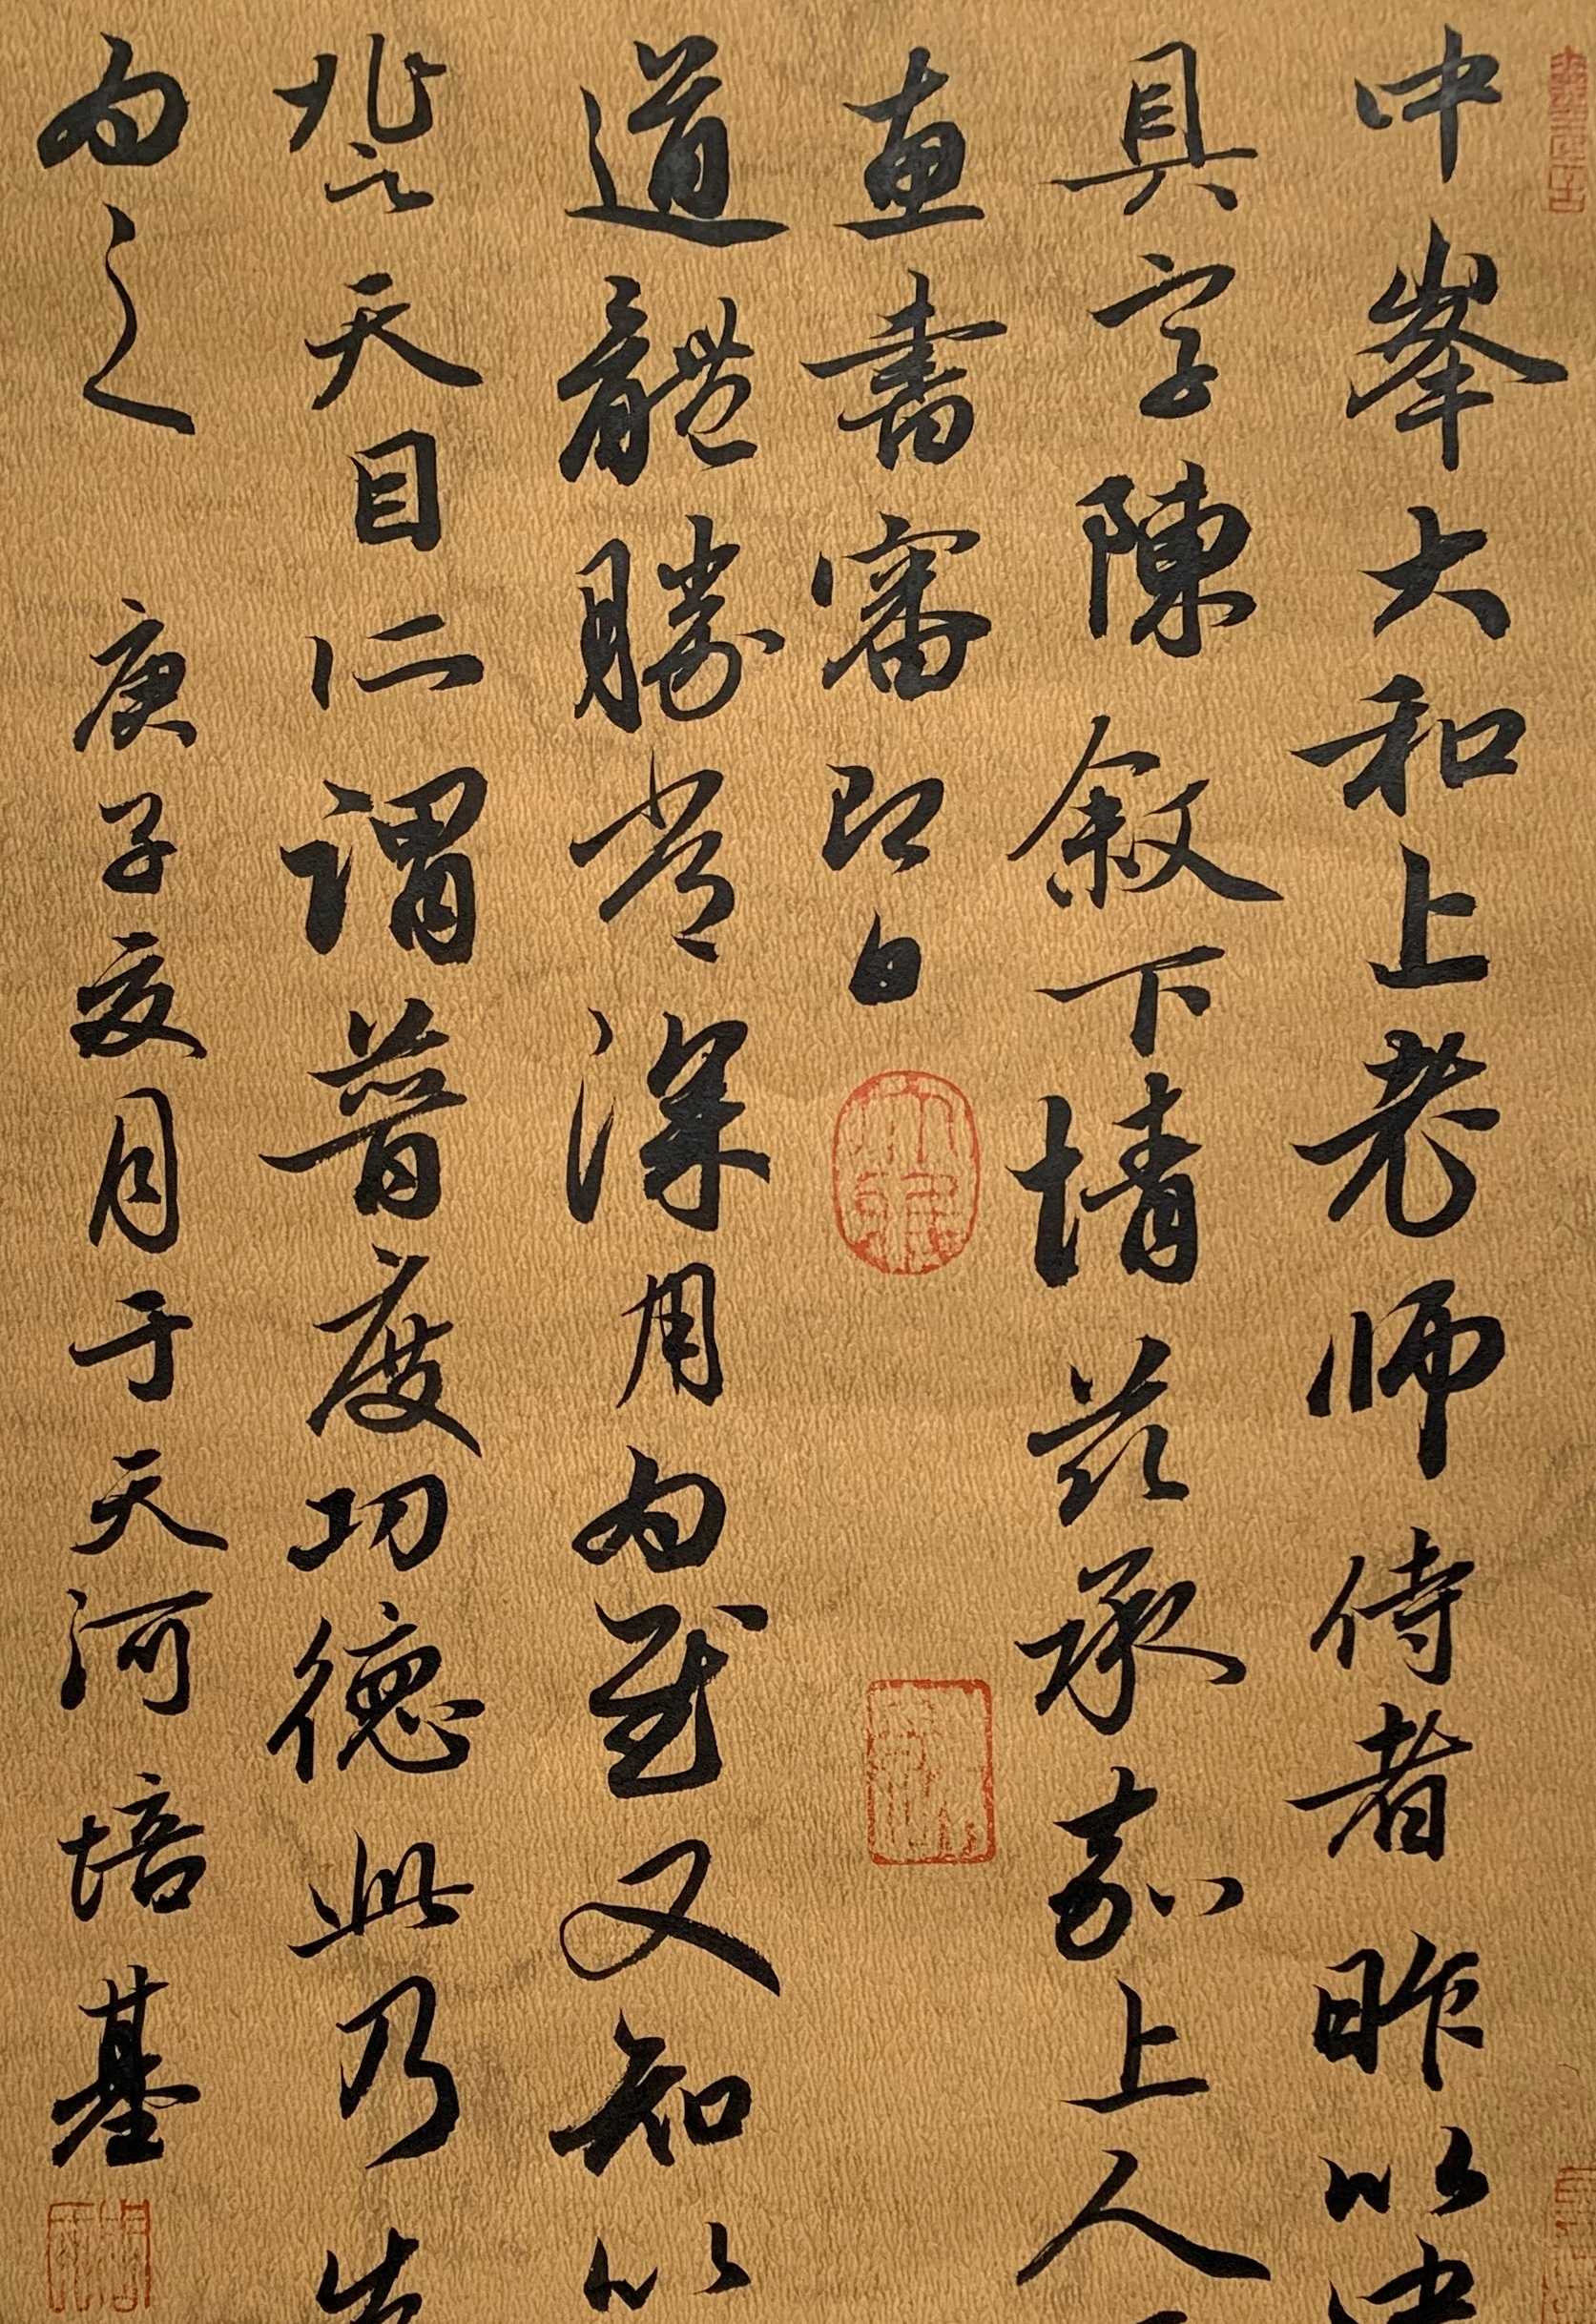 中峯大和上老师侍者昨以中
具字陳敘下情兹承嘉上人
惠書審即日
道體勝常深用為慰又知以
天目仁謂普度功德此乃先
為之 庚子夏月于天河 培基